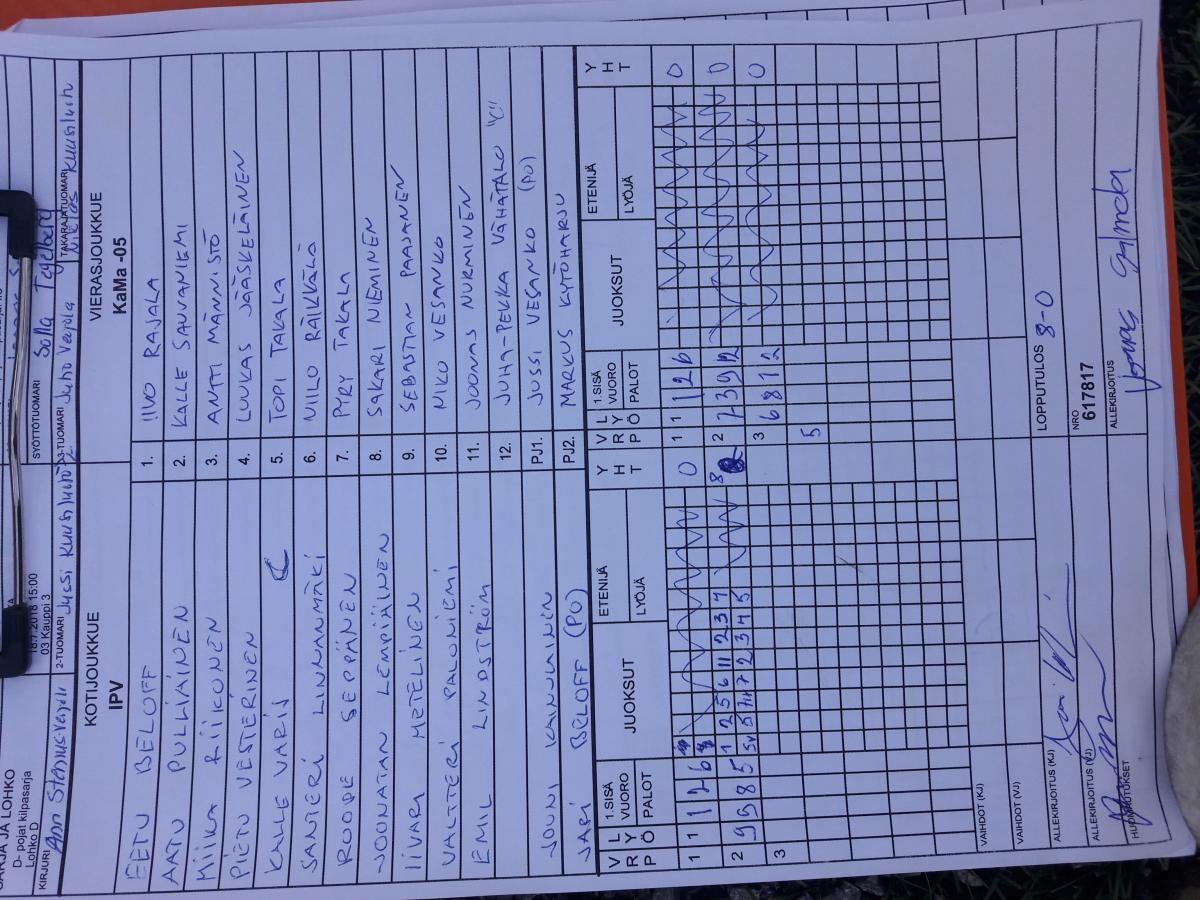 SARJA JA LOHKO
D- pojat kilpasarja
Lohko D
18.7.2018 15:00
03 Kauppi 3
KIRJURI
2-TUOMARI Jussi Kuusiluoto
SYÖTTÖTUOMARI Salla Tegelberg
3-TUOMARI Juho Vepola
TAKARAJATUOMARI Niklas Kuusiluoto
KOTIJOUKKUE
IPV
VIERASJOUKKUE
KaMa -05
EETU BELOFF 1. IIVO RAJALA
AATU PULLIAINEN 2. KALLE SAUVANIEMI
MIIKA RIIKONEN 3. ANTTI MÄNNISTÖ
PIETU VESTERINEN 4. LUUKAS JÄÄSKELÄINEN
KALLE VARIS C 5. TOPI TAKALA
SANTERI LINNANMÄKI 6. NIILO RÄIKKÄLÄ
ROOPE SEPPÄNEN 7. PYRY TAKALA
JOONATAN LEMPIÄINEN 8. SAKARI NIEMINEN
IIVARI METELINEN 9. SEBASTIAN PAAJANEN
VALTTERI PALONIEMI 10. NIKO VESANKO
EMIL LINDSTRÖM 11. JOONAS NURMINEN
12. JUHA-PEKKA VÄHÄTALO "C"
JOUNI KAINULAINEN PJ1. JUSSI VESANKO (PO)
JARI BELOFF (PO) PJ2. MARKUS KYTÖHARJU
V R P L Y Ö 1.SISÄ VUORO PALOT JUOKSUT ETENIJÄ LYÖJÄ Y H T V R P L Y Ö 1.SISÄ VUORO PALOT JUOKSUT ETENIJÄ LYÖJÄ Y H T
1 1 1 2 6 0 1 1 1 2 6 0
2 9 9 8 5 1 2 5 6 11 2 3 7 8 2 2 7 3 9 12 0
2 3 4 5
3 3 6 8 12 0
5
VAIHDOT (KJ)
VAIHDOT (VJ)
ALLEKIRJOITUS (KJ) LOPPUTULOS 8-0
ALLEKIRJOITUS (VJ) NRO
617817
HUOMAUTUKSET ALLEKIRJOITUS